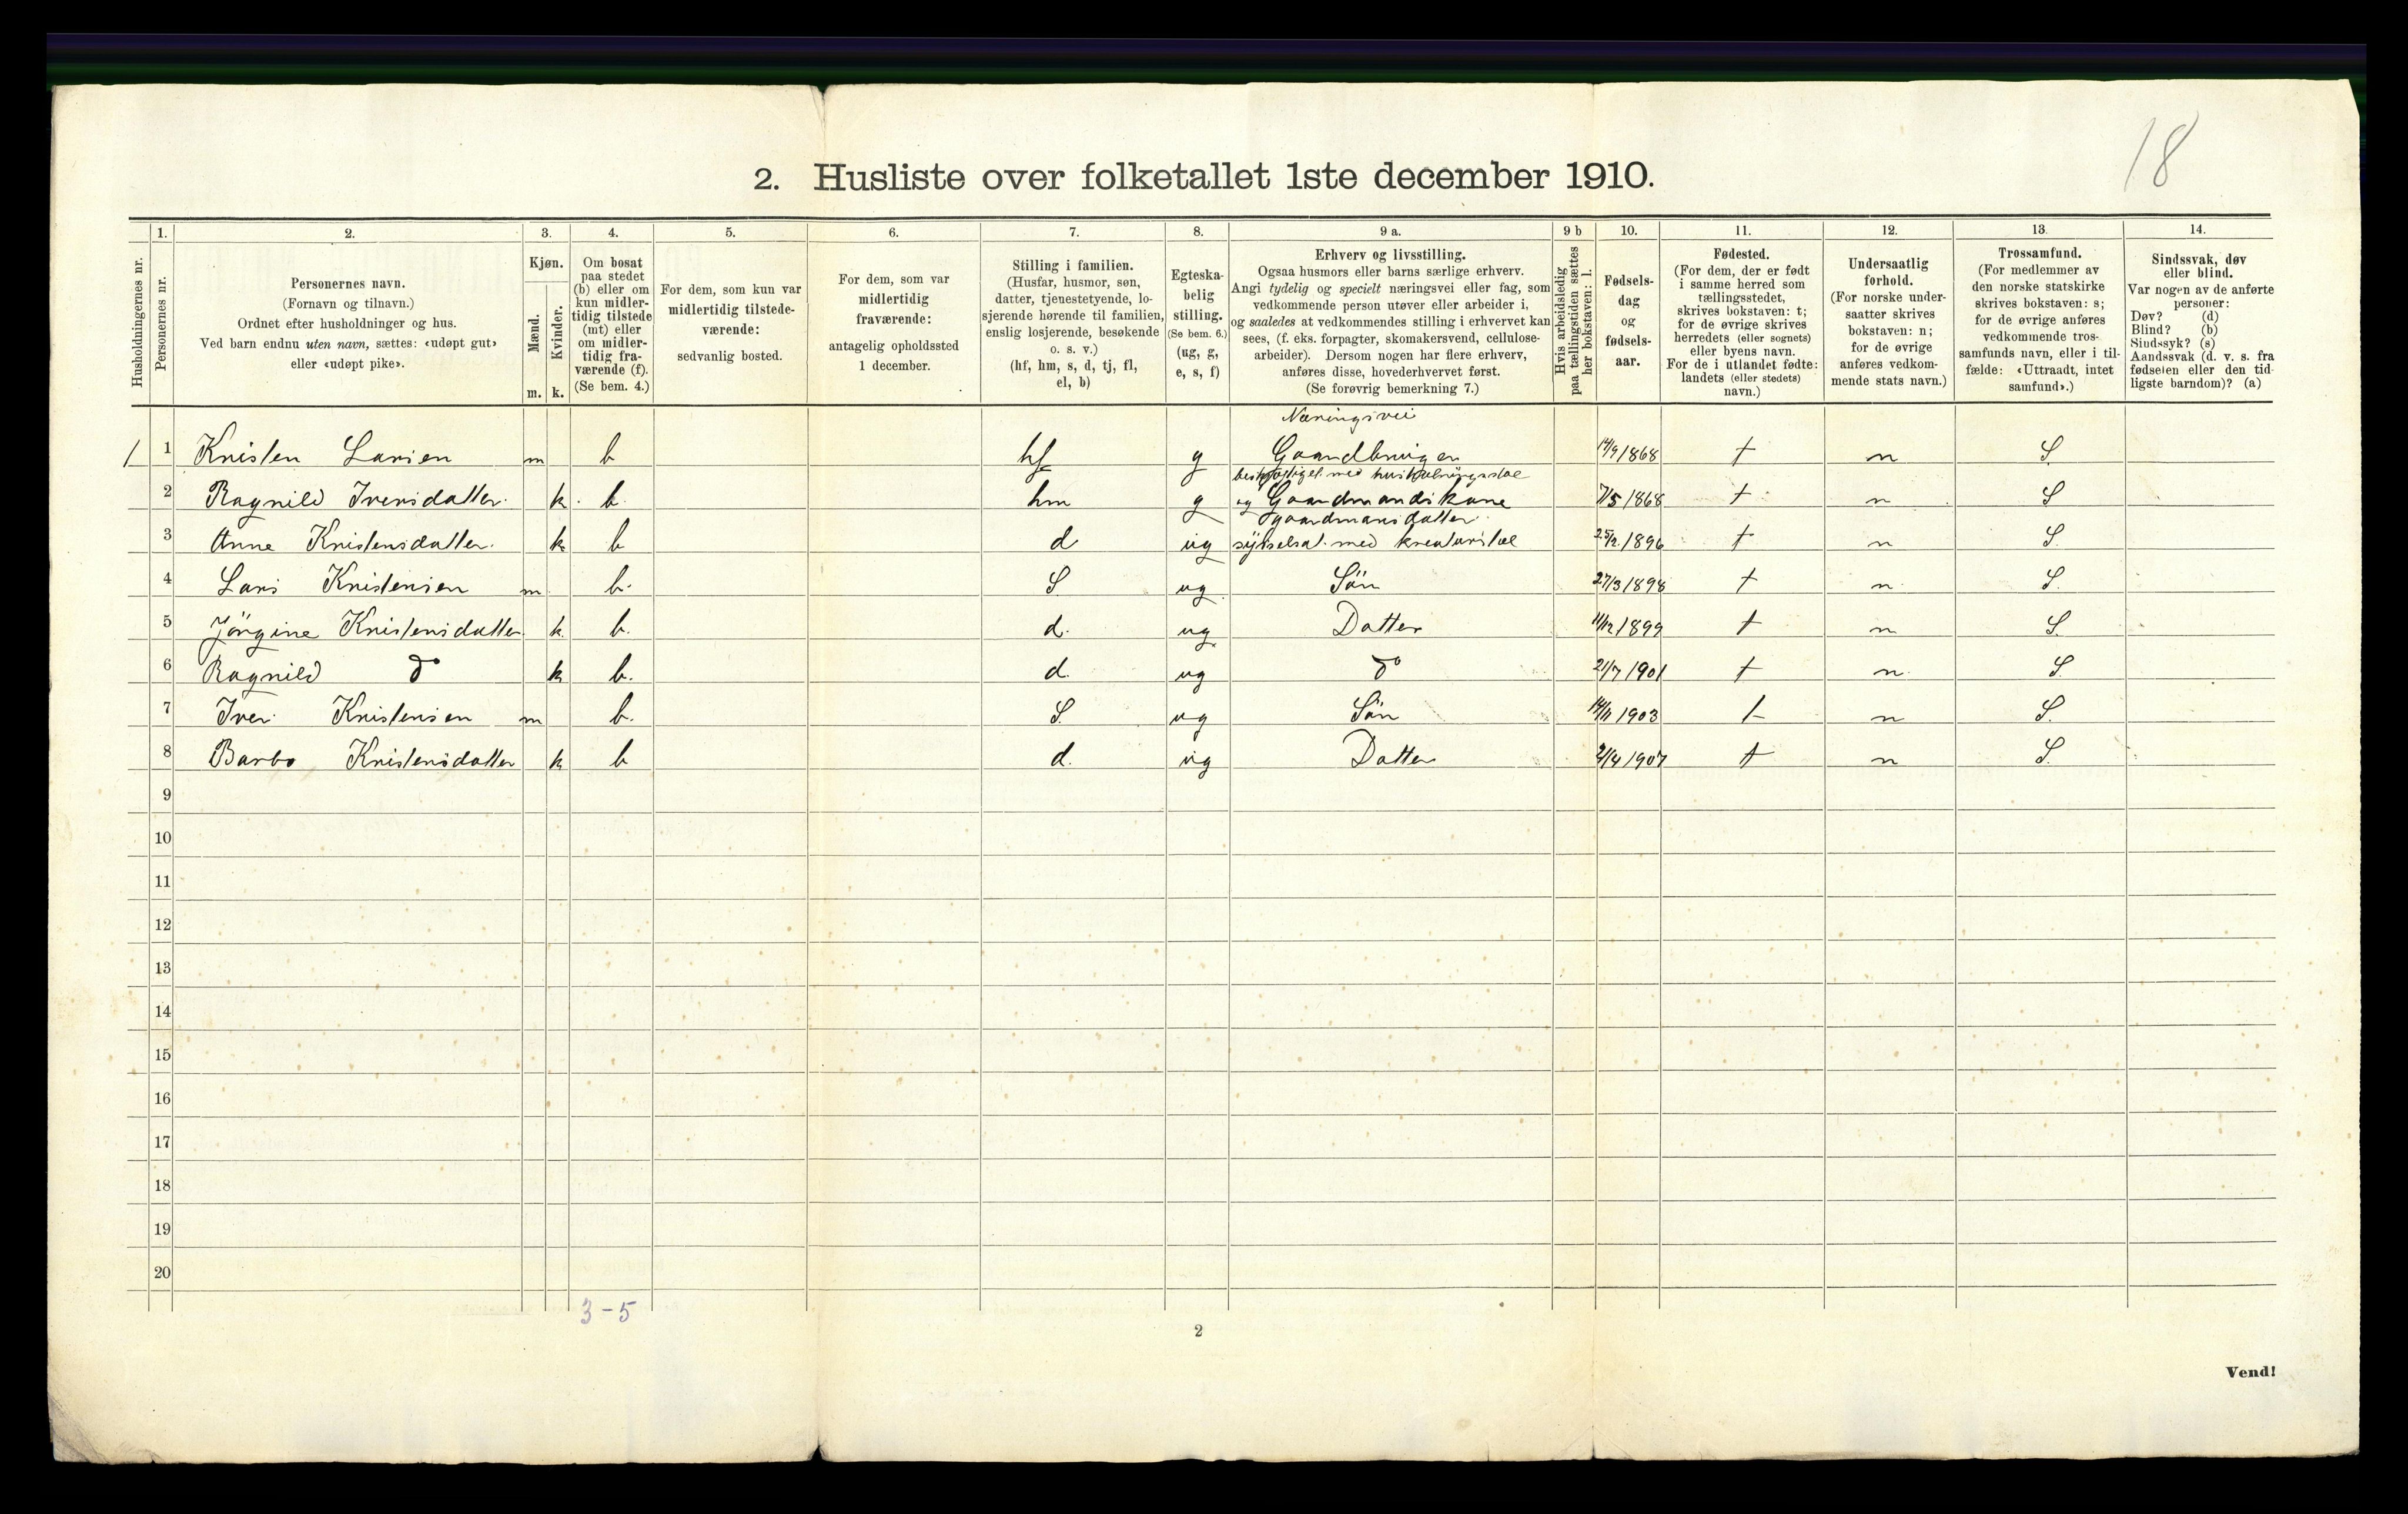 18
2. Husliste over folketallet 1ste december 1910.
Husholdningernes nr.
1. Personernes nr.
2. Personernes navn. (Fornavn og tilnavn.) Ordnet efter husholdninger og hus. Ved barn endnu uten navn, sættes: «udøpt gut» eller «udøpt pike».
3. Kjøn. Mænd. m. Kvinder. k.
4. Om bosat paa stedet (b) eller om kun midlertidig tilstede (mt) eller om midlertidig fraværende (f). (Se bem. 4.)
5. For dem, som kun var midlertidig tilstedeværende: sedvanlig bosted.
6. For dem, som var midlertidig fraværende: antagelig opholdssted 1 december.
7. Stilling i familien. (Husfar, husmor, søn, datter, tjenestetyende, losjerende hørende til familien, enslig losjerende, besøkende o. s. v.) (hf, hm, s, d, tj, fl, el, b)
8. Egteskabelig stilling. (Se bem. 6.) (ug, g, e, s, f)
9 a. Erhverv og livsstilling. Ogsaa husmors eller barns særlige erhverv. Angi tydelig og specielt næringsvei eller fag, som vedkommende person utøver eller arbeider i, og saaledes at vedkommendes stilling i erhvervet kan sees, (f. eks. forpagter, skomakersvend, cellulose-arbeider). Dersom nogen har flere erhverv, anføres disse, hovederhvervet først. (Se forøvrig bemerkning 7.)
9 b Hvis arbeidsledig paa tællingstiden sættes her bokstaven: l.
10. Fødselsdag og fødselsaar.
11. Fødested. (For dem, der er født i samme herred som tællingsstedet, skrives bokstaven: t; for de øvrige skrives herredets (eller sognets) eller byens navn. For de i utlandet fødte: landets (eller stedets) navn.)
12. Undersaatlig forhold. (For norske undersaatter skrives bokstaven: n; for de øvrige anføres vedkommende stats navn.)
13. Trossamfund. (For medlemmer av den norske statskirke skrives bokstaven: s; for de øvrige anføres vedkommende trossamfunds navn, eller i tilfælde: «Uttraadt, intet samfund».)
14. Sindssvak, døv eller blind. Var nogen av de anførte personer: Døv? (d) Blind? (b) Sindssyk? (s) Aandssvak (d. v. s. fra fødselen eller den tidligste barndom)? (a)
Næringsvei
1 1 Kristen Larsen m b hf g Gaardbruger 14/9 1868 t n S.
med husholdningsstel
2 Ragnild Iversdatter. k. b. hm g og Gaardmandskone 7/5 1868 t n S
gaardmansdatter
3 Anne Kristensdatter. k b d ug sysselsat. med kreaturstel 25/2 1896 t n S.
4 Lars Kristensen m b. S ug Sön 27/3 1898 t n S.
5 Jörgine Kristensdatter k. b. d. ug Datter 11/12 1899 t n S.
6 Ragnild do k b. d. ug do 21/7 1901 t n. S.
7 Iver Kristensen m b. S. ug Sön 14/11 1903 t n S.
8 Barbo Kristensdatter k b d. ug Datter 2/4 1907 t n S.
9
10
11
12
13
14
15
16
17
18
19
20
3-5
2
Vend!